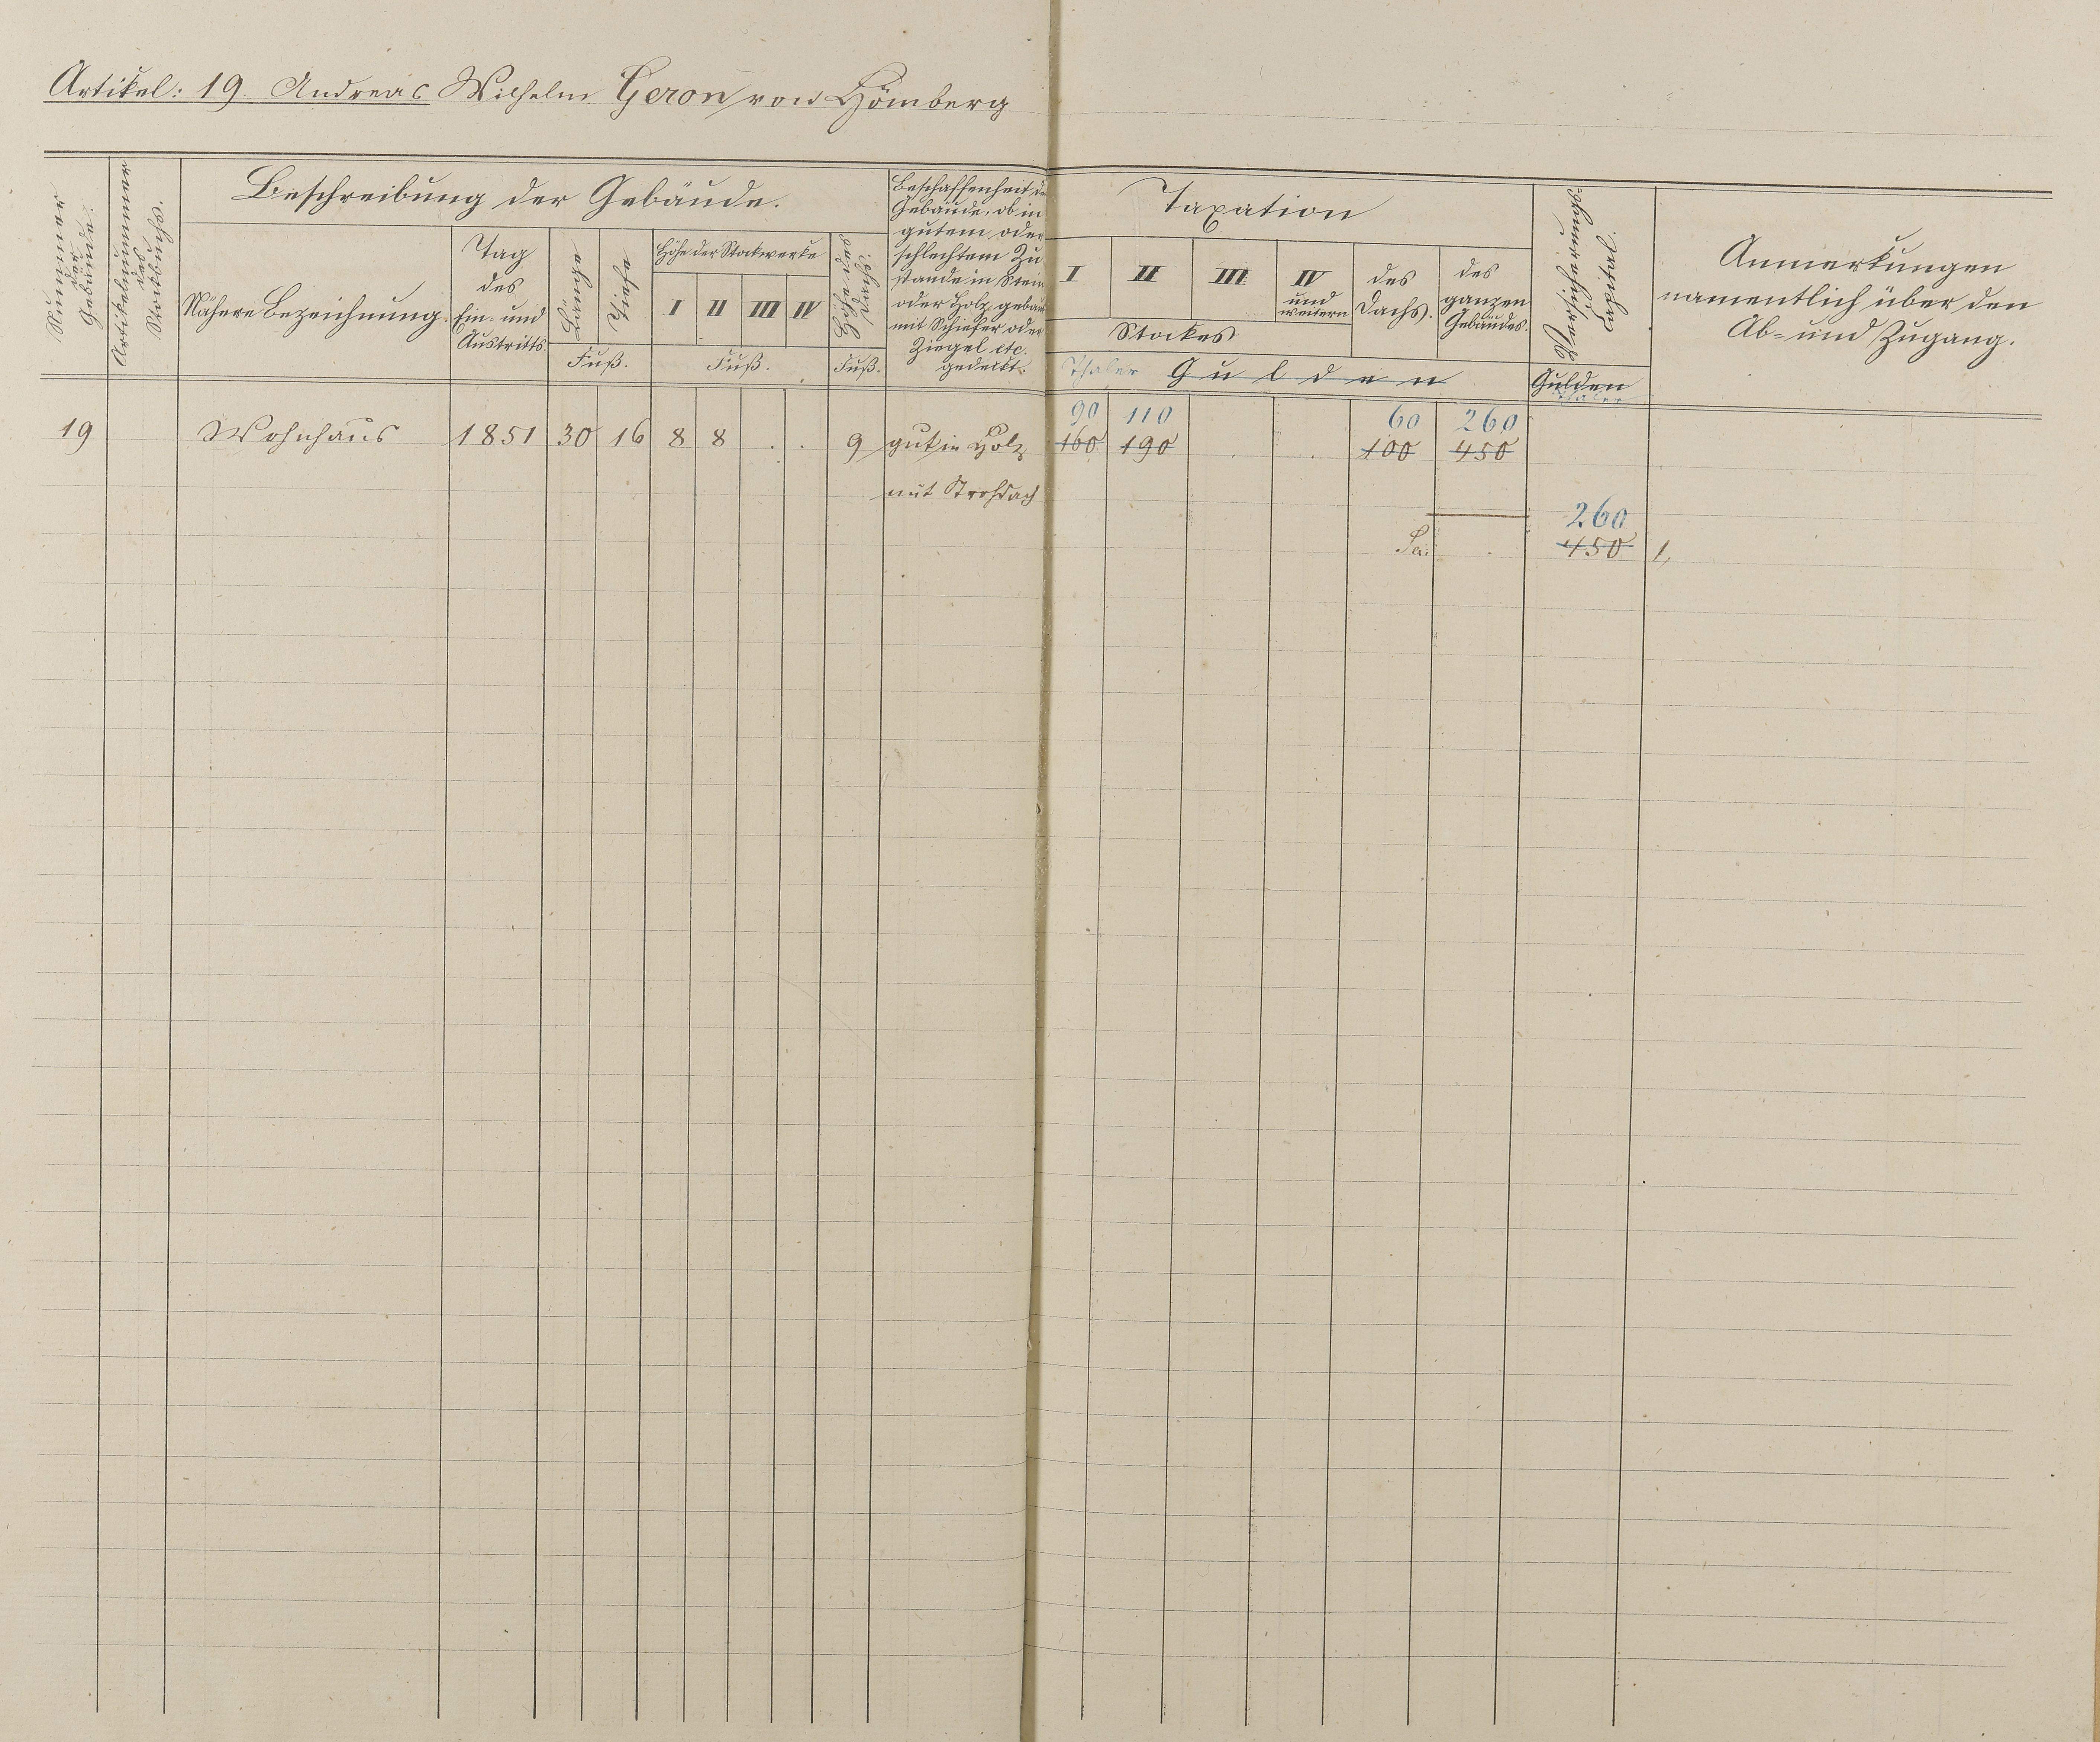 Artikel: 19. Andreas Wilhelm Geron von Hömberg
Nummer
der
Gebäude.
Artikelnummer
des
Stockbuchs.
Beschreibung der Gebäude.
Nähere Bezeichnung.
Tag
des
Ein- und
Austritts.
Länge
Tiefe
Fuß.
Höhe der Stockwerke
I II III IV
Fuß.
Höhe des
Dachs.
Fuß.
Beschaffenheit der
Gebäude, ob in
gutem oder
schlechtem Zu
stande in Stein
oder Holz gebaut
mit Schiefer oder
Ziegel etc.
gedeckt.
Taxation
I II III IV
und
weitern
Stockes
des
Dachs.
des
ganzen
Gebäudes.
Thaler Gulden
Versicherungs
Capital.
Gulden
Thaler
Anmerkungen
namentlich über den
Ab- und Zugang.
90 110 60 260
19 Wohnhaus 1851 30 16 8 8 . . 9 gut in Holz 160 190 . . 100 450
mit Strohdach
260
Sa. . 450 1,